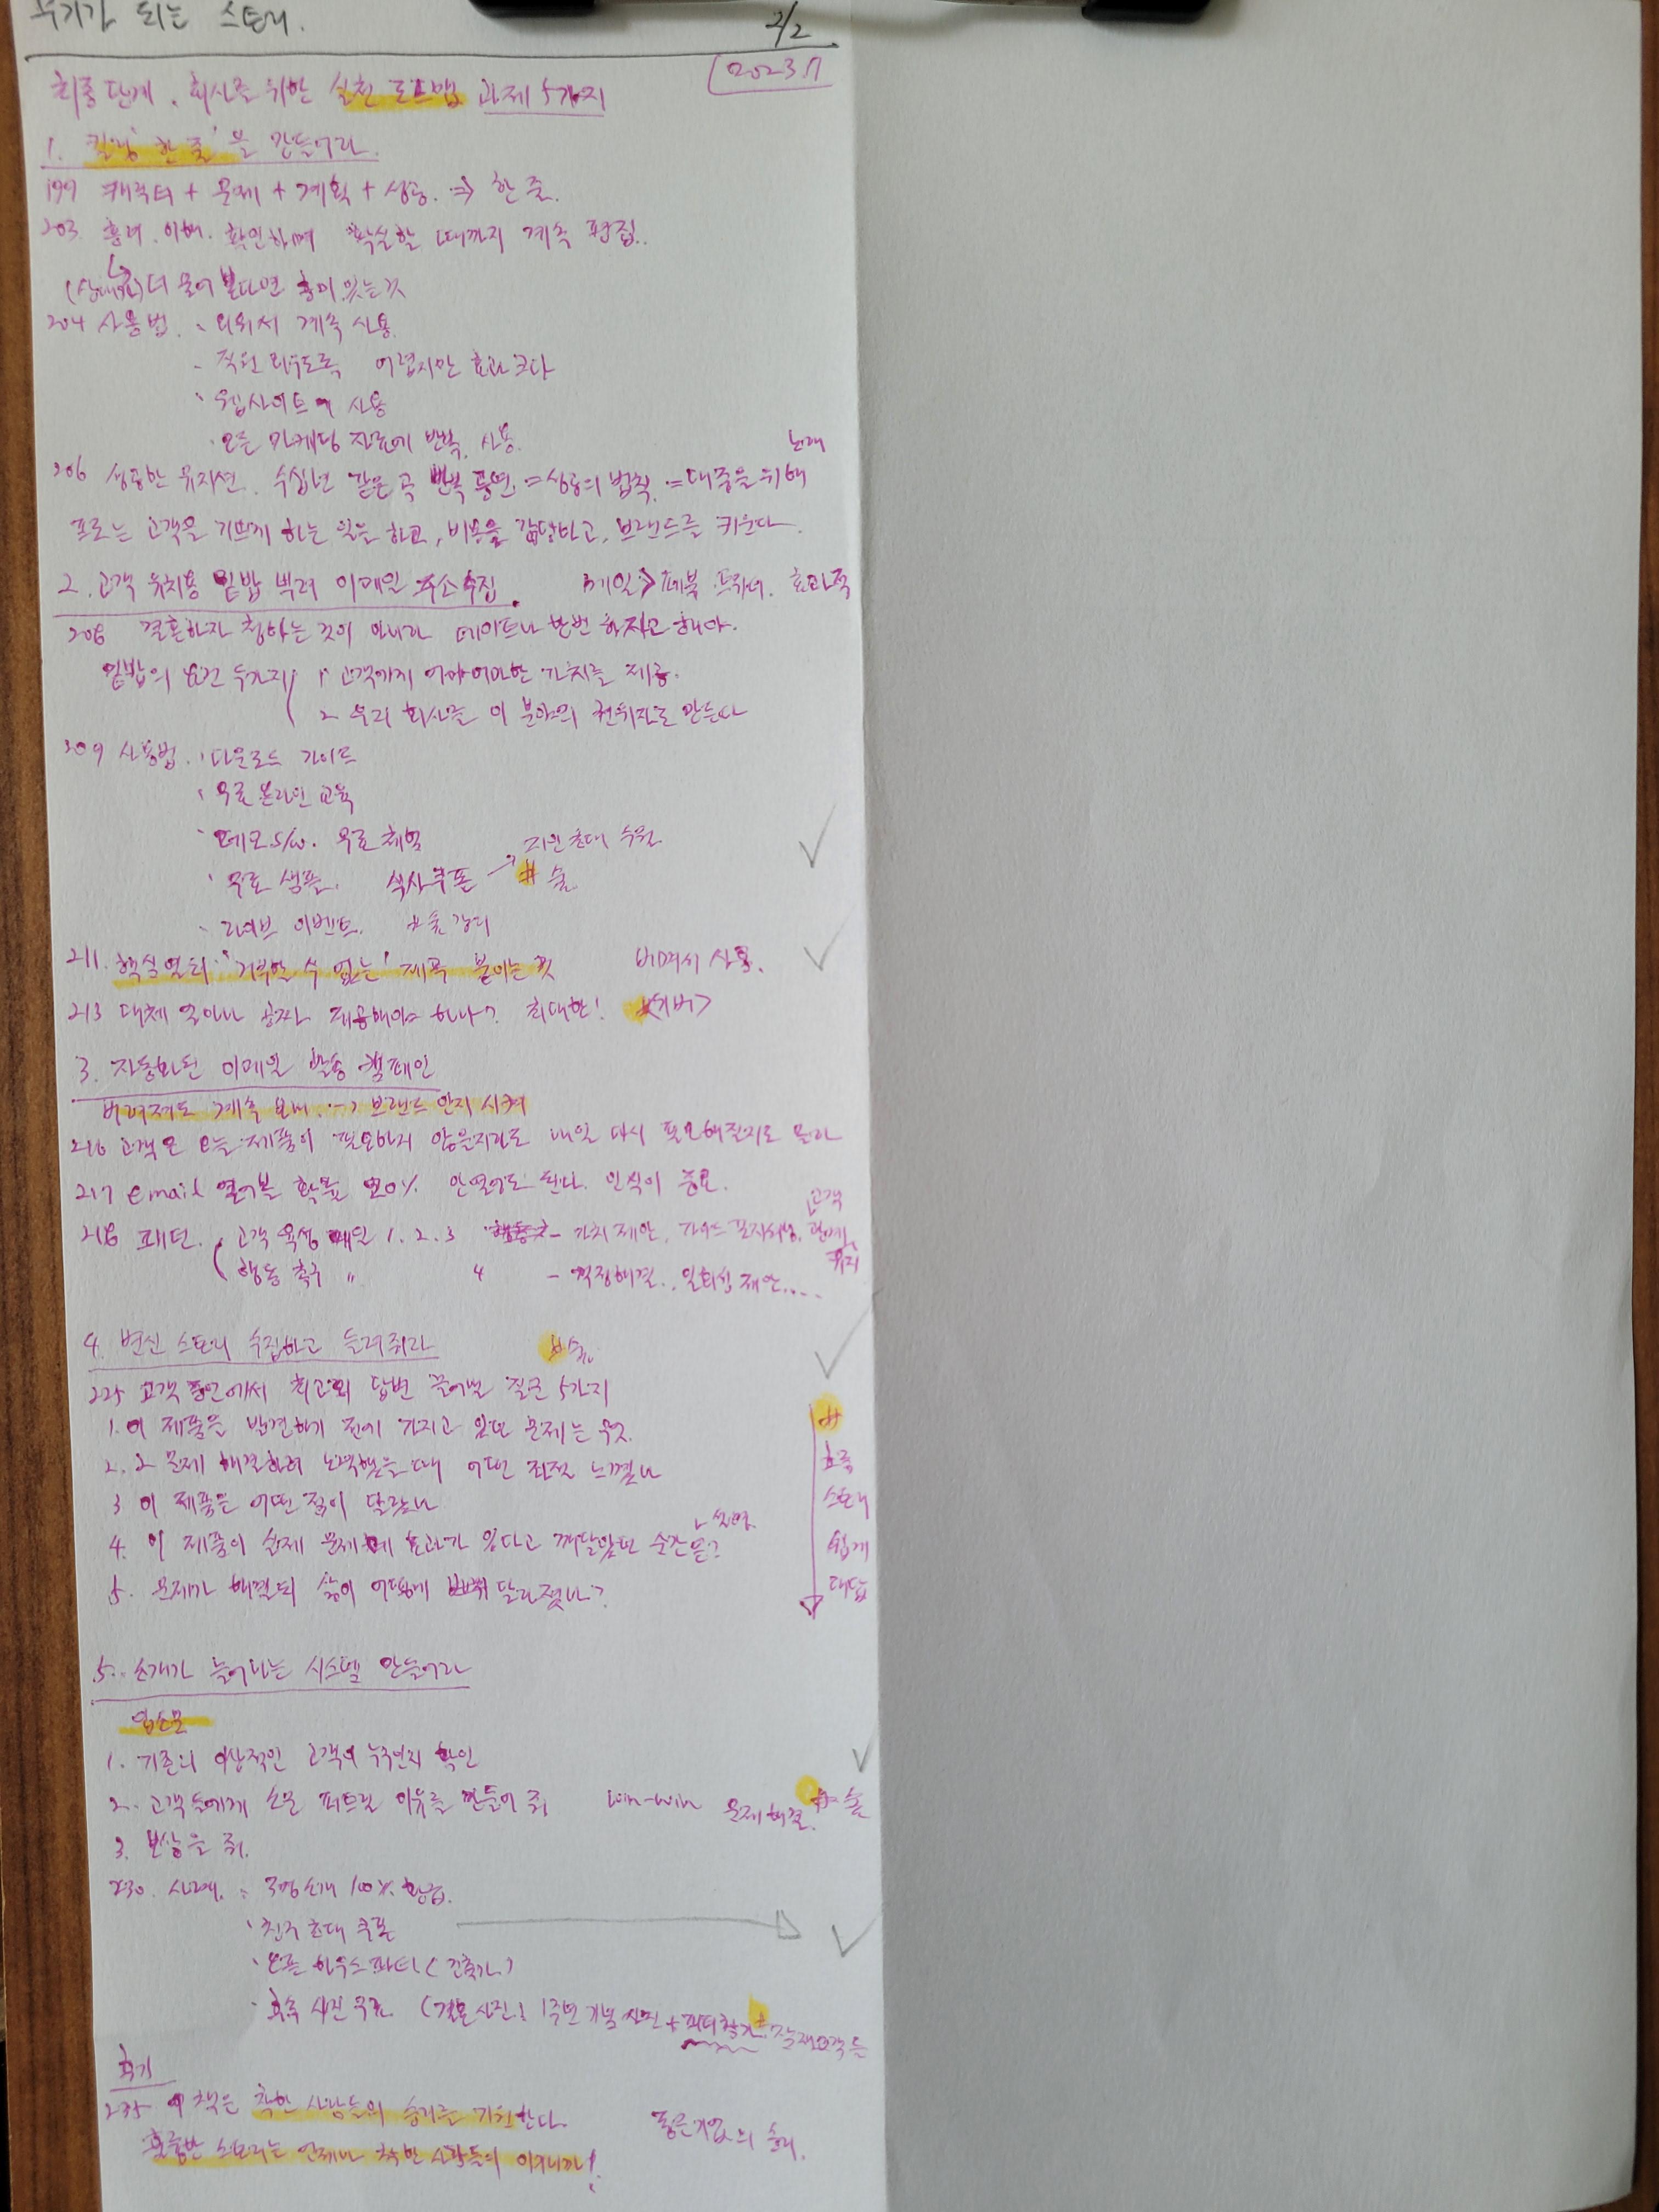 무기가 되는 스토리. 2/2
2023.7
최종단계. 회사를 위한 실천 로드맵 과제 5가지
1. 킬링 '한 줄'을 만들어라.
199 캐릭터 + 문제 + 계획 + 성공. ⇒ 한 줄.
203. 흥미. 이해. 확인하며 확실할 때까지 계속 편집.
(상대방) 더 물어 본다면 흥미 있는 것
204 사용법. · 외워서 계속 사용.
· 직원 외우도록 어렵지만 효과 크다
· 웹사이트에 사용
· 모든 마케팅 자료에 반복 사용.
노래
206 성공한 뮤지션. 수십년 같은 곡 반복 공연 = 성공의 법칙. = 대중을 위해
프로는 고객을 기쁘게 하는 일을 하고, 비용을 감당하고, 브랜드를 키운다.
2. 고객 유치용 밑밥 뿌려 이메일 주소 수집. 메일 > 페북 트위터. 효과적
208 결혼하자 청하는 것이 아니라 데이트나 한번 하자고 해야.
밑밥의 요건 두가지 1 고객에게 어마어마한 가치를 제공.
2 우리 회사를 이 분야의 권위자로 만든다
209 사용법. · 다운로드 가이드
· 무료 온라인 교육
· 데모 s/w. 무료 체험
지인 초대 수단
· 무료 샘플. 식사쿠폰 → # 숲
· 라이브 이벤트. # 숲 강의
211. 핵심 열쇠 '거부할 수 없는' 제목 붙이는 것
213 대체 얼마나 공짜 제공해야 하나? 최대한!
3. 자동화된 이메일 발송 캠페인
버려져도 계속 보내. → 브랜드 인지 시켜
216 고객은 오늘 제품이 필요하지 않을지라도 내일 다시 필요해질지도 몰라
217 email 열어볼 확률 20% 안열어도 된다. 인식이 중요.
고객
218 패턴. 고객 육성 메일 1. 2. 3 - 가치제안, 가이드 포지셔닝, 관계
유지
행동 촉구 〃 4 - 걱정해결., 일회성 제안....
4. 변신 스토리 수집하고 들려줘라 # 숲
225 고객 증언에서 최고의 답변 끌어낼 질문 5가지
1. 이 제품을 발견하기 전에 가지고 있던 문제는 무엇.
2. 그 문제 해결하려 노력했을 때 어떤 좌절 느꼈나
3 이 제품은 어떤 점이 달랐나
4. 이 제품이 실제 문제에 효과가 있다고 깨달았던 순간은? 설명.
5. 문제가 해결되 삶이 어떻게 바뀌 달라졌나?
#
효죽
스토리
쉽게
대답
5. 소개가 늘어나는 시스템 만들어라
입소문
1. 기존의 이상적인 고객이 누구인지 확인
2. 고객들에게 소문 퍼트릴 이유를 만들어 줘 win-win 문제해결. # 숲
3. 보상을 줘.
230. 사례. · 3명 소개 100% 환급.
· 친구 초대 쿠폰
· 오픈 하우스 파티 (건축가)
· 후속 사진 무료 (결혼사진) 1주년 기념 사진 + 파티 참가 잠재고객들
후기
235 이 책은 착한 사람들의 승리를 기원한다
좋은 기업의 승리.
훌륭한 스토리는 언제나 착한 사람들이 이기니까!